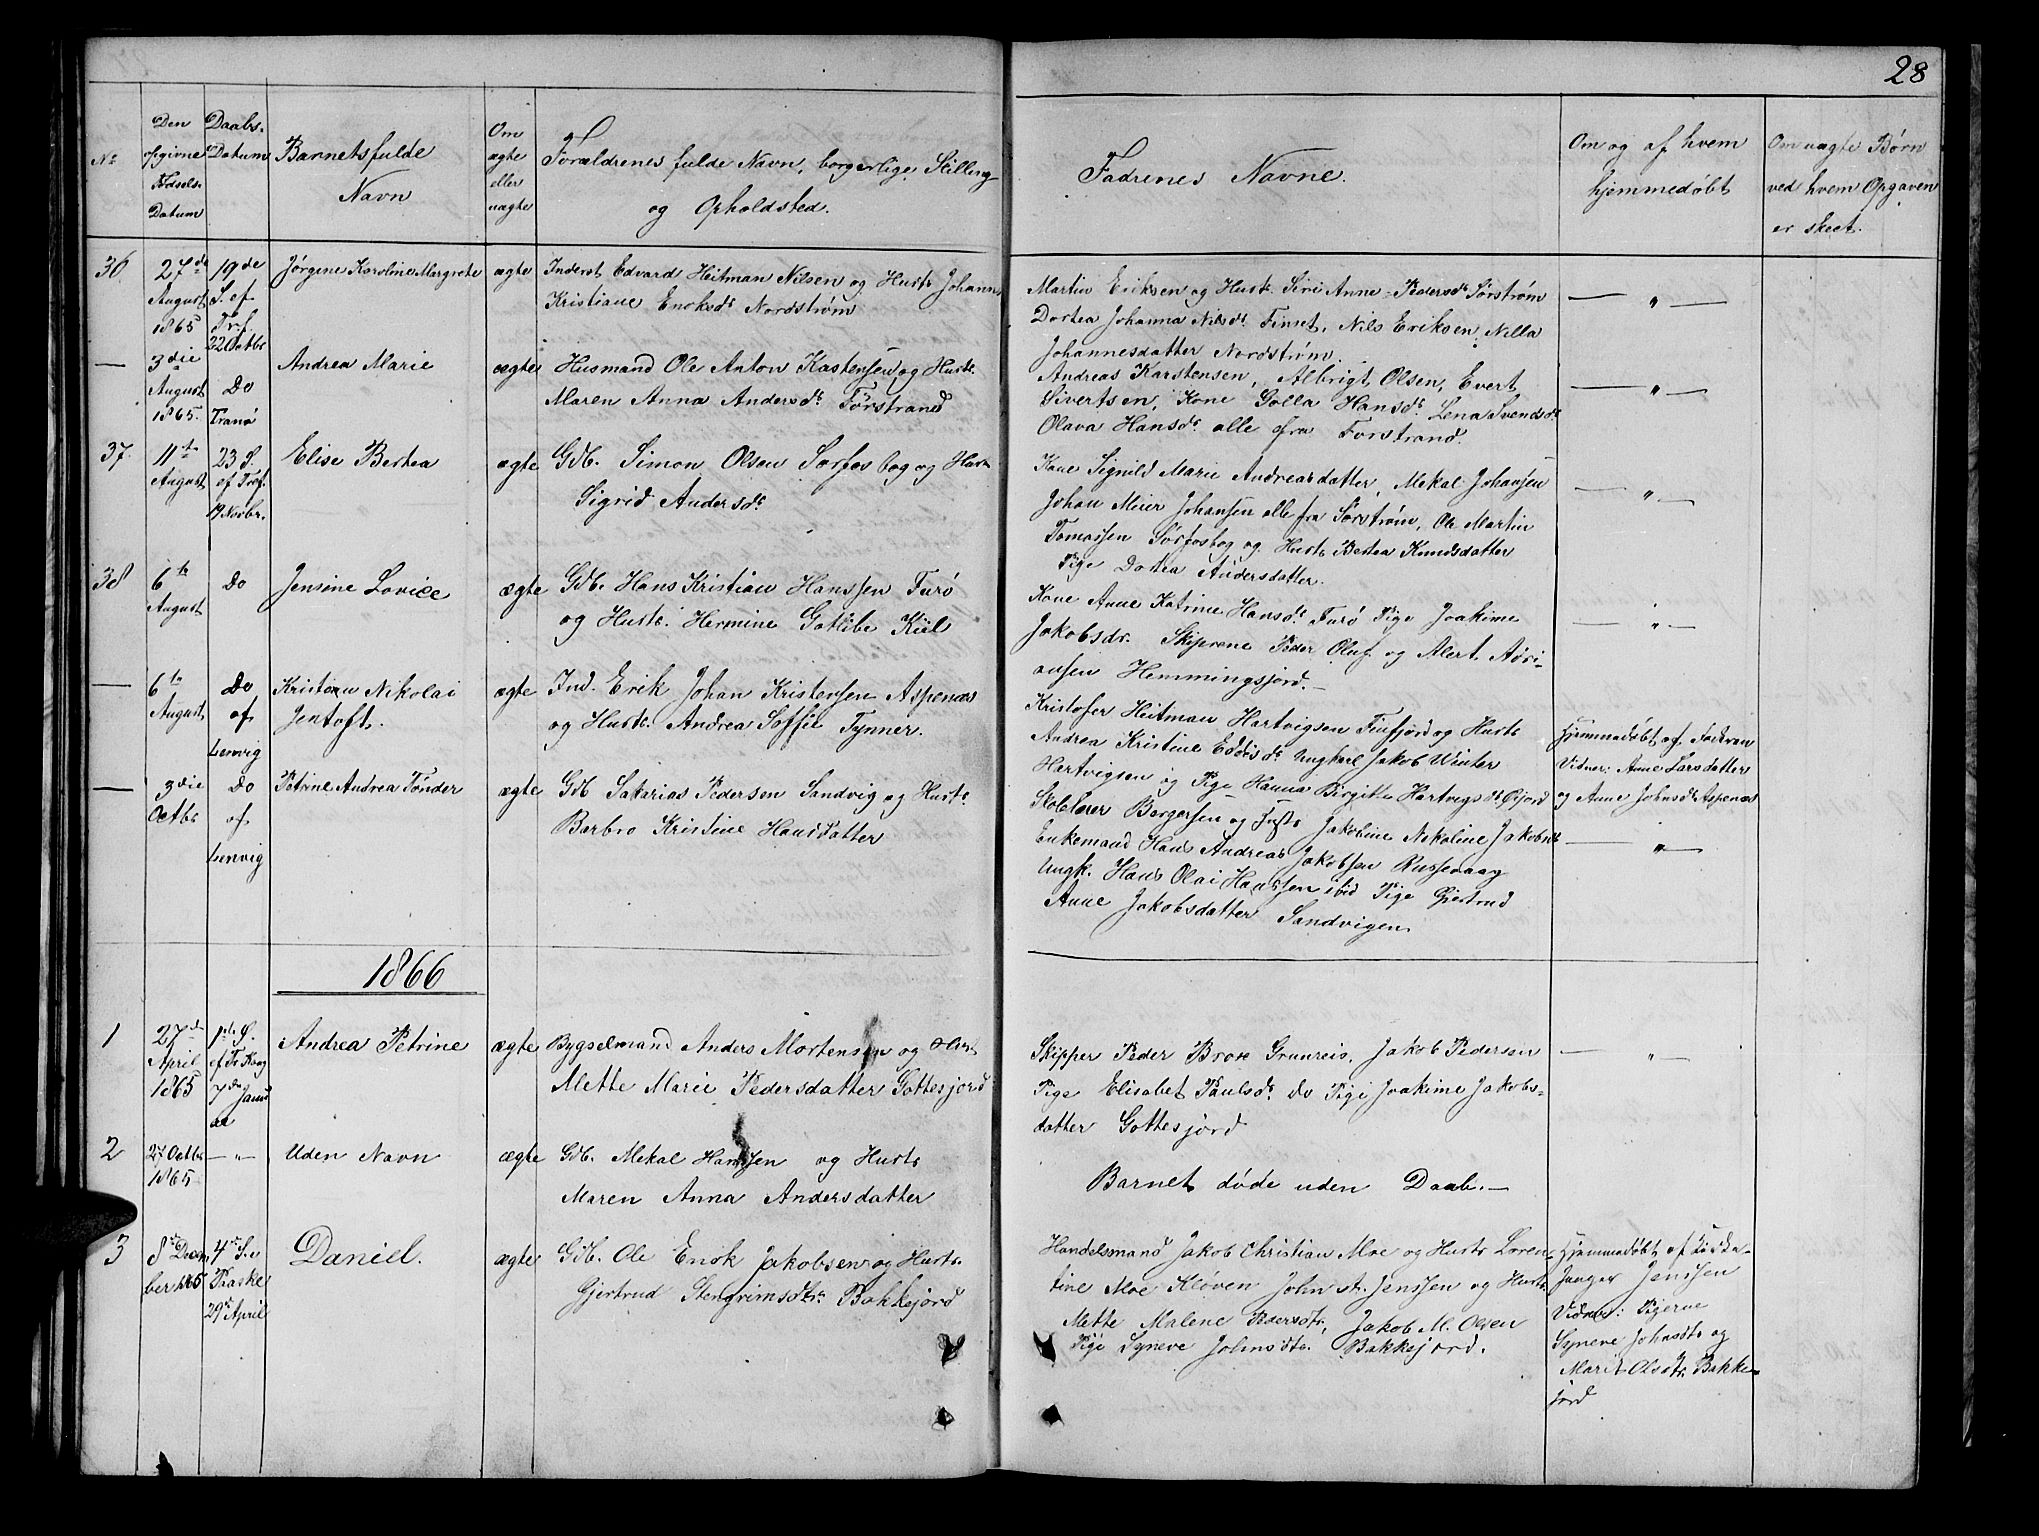 28
No
Den
opgivne
Fødsels
Datum
Daabs-
Datum
Barnets fulde
Navn
Om
ægte
eller
uægte
Forældrenes fulde Navn, borgerlige Stilling
og Opholdsted.
Fadrenes Navne.
Om og af hvem
hjemmedøbt
Om uægte Børn
ved hvem Opgaven
er skeet.
36
27de
August
1865
19de
S. ef
Tref
22 Octbr
Jørgine Karoline Margrete
ægte
Inderst Edvard Heitman Nilsen og Hustr Johann
Kristiane Enoksdr Nordstrøm
Martin Eriksen og Hustr. Siri Anne Pedersdr Sørstrøm
Dortea Johanna Nilsdr Finset, Nils Eriksen, Nilla
Johannesdatter Nordstrøm.
— " —
—
3die
August
1865.
Do
Tranø
Andrea Marie
ægte
Husmand Ole Anton Kastensen og Hustr.
Maren Anna Andersdr Forstrand
Andreas Karstensen, Albrigt Olsen, Evert
Sivertsen, Kone Golla Hansdr. Lena Svendsdr
Olava Hansdr alle fra Forstrand.
— " —
37.
11te
August
23 S.
ef Tref.
19 Novbr.
Elise Bertea
ægte
Gdb. Simon Olsen Sørfosbog og Hustr
Sigrid Andersdr
Kone Signild Marie Andreasdatter, Mekal Johansen
Johan Meier Johansen alle fra Sørstrøm, Ole Martin
Tomassen Sørfosbog og Hustr Bertea Knudsdatter
Pige Dortea Andersdatter.
— " —
38
6te
August
Do
Jensine Lovice
ægte
Gdb. Hans Kristian Hanssen Turø
og Hustr. Hermine Gotlibe Kiil
Kone Anne Katrine Hansdr Turø Pige Joakime
Jakobsdr. Skiprene Peder Oluf og Alert Adri-
ansen Hemmingsjord.—
— " —
—
6te
August
Do
af
Lenvig
Kristian Nikolai
Jentoft.
ægte
Ind. Erik Johan Kristensen Aspenæs
og Hustr. Andrea Soffie Tynner.
Kristofer Heitman Hartvigsen Finfjord og Hustr
Andrea Kristine Eddisdr Ungkarl Jakob Winter
Hartvigsen og Pige Hanna Birgitte Hartvigsdr Øijord
Hjemmedøbt af Farbran
Vidner: Anne Larsdatter
og Anne Johnsdr Aspenæs
—
3die
Octbr
Do
af
Lenvig
Petrine Andrea Tønder
ægte
Gdb Sakarias Pedersen Sandvig og Hustr.
Barbro Kristine Hansdatter
Skolelærer Bergersen og Hustr Jakobine Nikoline Jakobsdr
Enkemand Hans Andreas Jakobsen Russevaag
Ungk. Hans Olai Hanssen ibid Pige Gjertrud
Anne Jakobsdatter Sandvigen.
— " —
1866
1
27de
April
1865
1ste S.
ef Tr Kong
7de Janu
ar
Andrea Petrine
ægte
Bygselmand Anders Mortensen og Hust
Mette Marie Pedersdatter Gottesjord
Skipper Peder Brox Grunreis, Jakob Pedersen
Pige Elisabet Paulsdr. Do Pige Joakime Jakobs-
datter Gottesjord
— " —
2
27 Octbr
1865
— " —
Uden Navn
ægte
Gdb. Mekal Hanssen og Hustr
Maren Anna Andersdatter
Barnet døde uden Daab.—
3
8de Decem
ber 1865
4de S. e
Paaske
29de April
Daniel.
ægte
Gdb. Ole Enok Jakobsen og Hustr.
Gjertrud Stengrimsdtr Bakkejord
Handelsmand Jakob Christian Moe og Hustr Loren-
tine Moe Kløven John St. Jenssen og Hustr
Mette Malene Pedersdtr, Jakob M. Olsen
Pige Syneve Johnsdtr. Bakkejord.
Hjemmedøbt af
Jenssen
Vidner: Pigerne
Syneve Johnsdtr og
Marit Olsdtr. Bakke-
jord